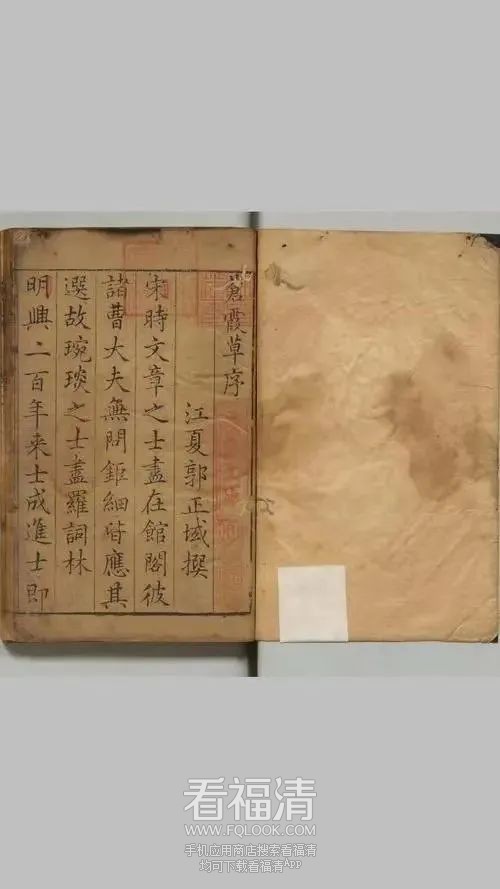 蒼霞草序
江夏郭正域撰
宋時文章之士盡在館閣彼
諸曹大夫無問鉅細皆應其
選故琬琰之士盡羅詞林
明興二百年来士成進士即
看福清
WWW.FQLOOK.COM
手机应用商店搜索看福清
均可下载看福清APP